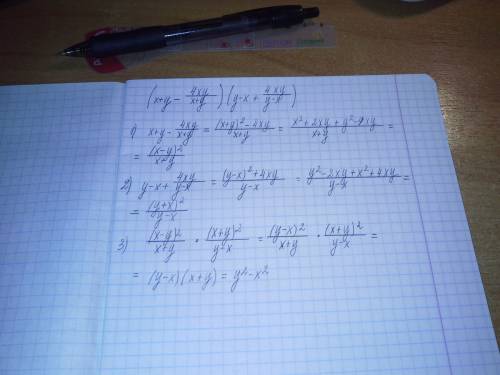 (x+y - 4xy/(x+y)) (y-x + 4xy/(y-x))
1) x+y - 4xy/(x+y) = ((x+y)² - 4xy)/(x+y) = (x² + 2xy + y² - 4xy)/(x+y) =
= (x-y)²/(x+y)
2) y-x + 4xy/(y-x) = ((y-x)² + 4xy)/(y-x) = (y² - 2xy + x² + 4xy)/(y-x) =
= (y+x)²/(y-x)
3) (x-y)²/(x+y) · (x+y)²/(y-x) = (y-x)²/(x+y) · (x+y)²/(y-x) =
= (y-x)(x+y) = y² - x²